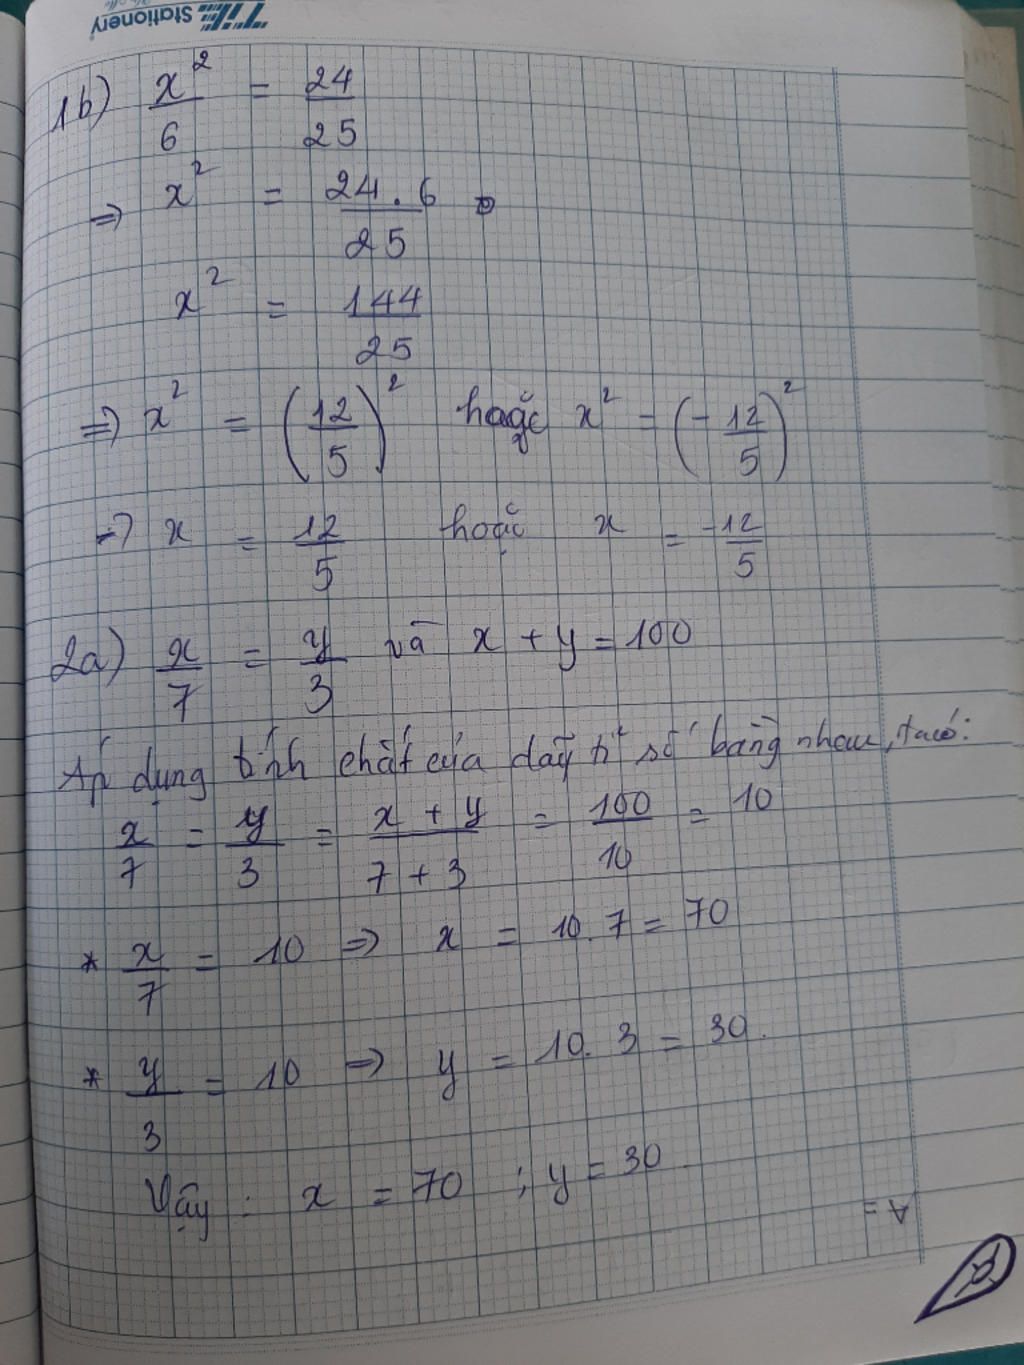 TL Stationery
1b) x²/6 = 24/25
=> x² = 24.6/25
x² = 144/25
=> x² = (12/5)² hoặc x² = (-12/5)²
=> x = 12/5 hoặc x = -12/5
2a) x/7 = y/3 và x + y = 100
Áp dụng tính chất của dãy tỉ số bằng nhau, ta có:
x/7 = y/3 = x + y/7 + 3 = 100/10 = 10
* x/7 = 10 => x = 10.7 = 70
* y/3 = 10 => y = 10.3 = 30.
Vậy : x = 70 ; y = 30
A =